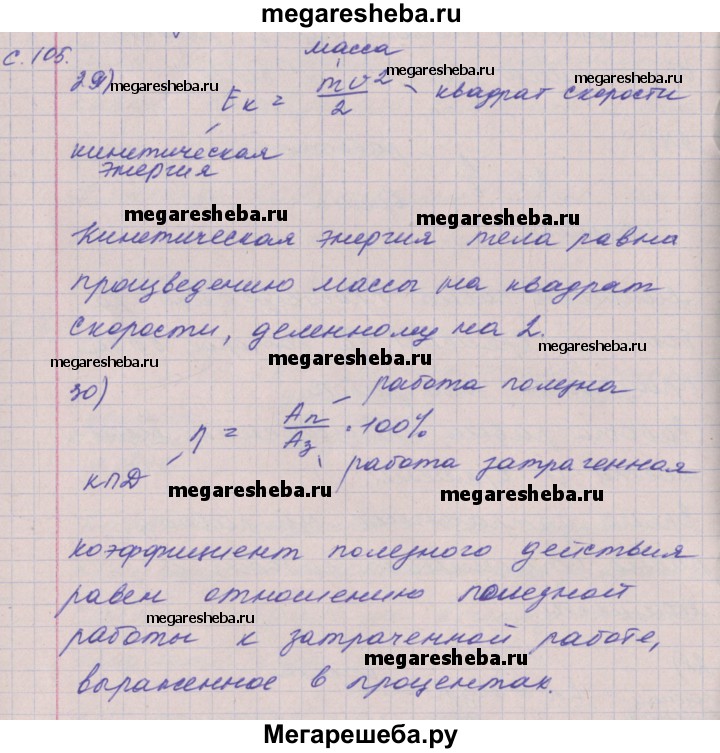 megaresheba.ru
с. 105.
масса
29) megaresheba.ru Eк = mv²/2 megaresheba.ru megaresheba.ru
квадрат скорости
кинетическая
энергия
megaresheba.ru megaresheba.ru
Кинетическая энергия тела равна
произведению массы на квадрат
скорости, деленному на 2.
megaresheba.ru megaresheba.ru megaresheba.ru
30) работа полезна
η = Aп/Aз · 100%
кпД работа затраченная
megaresheba.ru megaresheba.ru
коэффициент полезного действия
равен отношению полезной
megaresheba.ru
работы к затраченной работе,
megaresheba.ru
выраженное в процентах.
Мегарешеба.ру